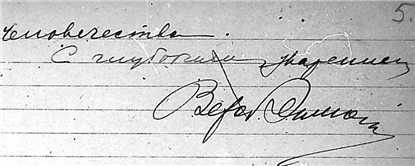 5.
человечества.
С глубоким уважением
Вера